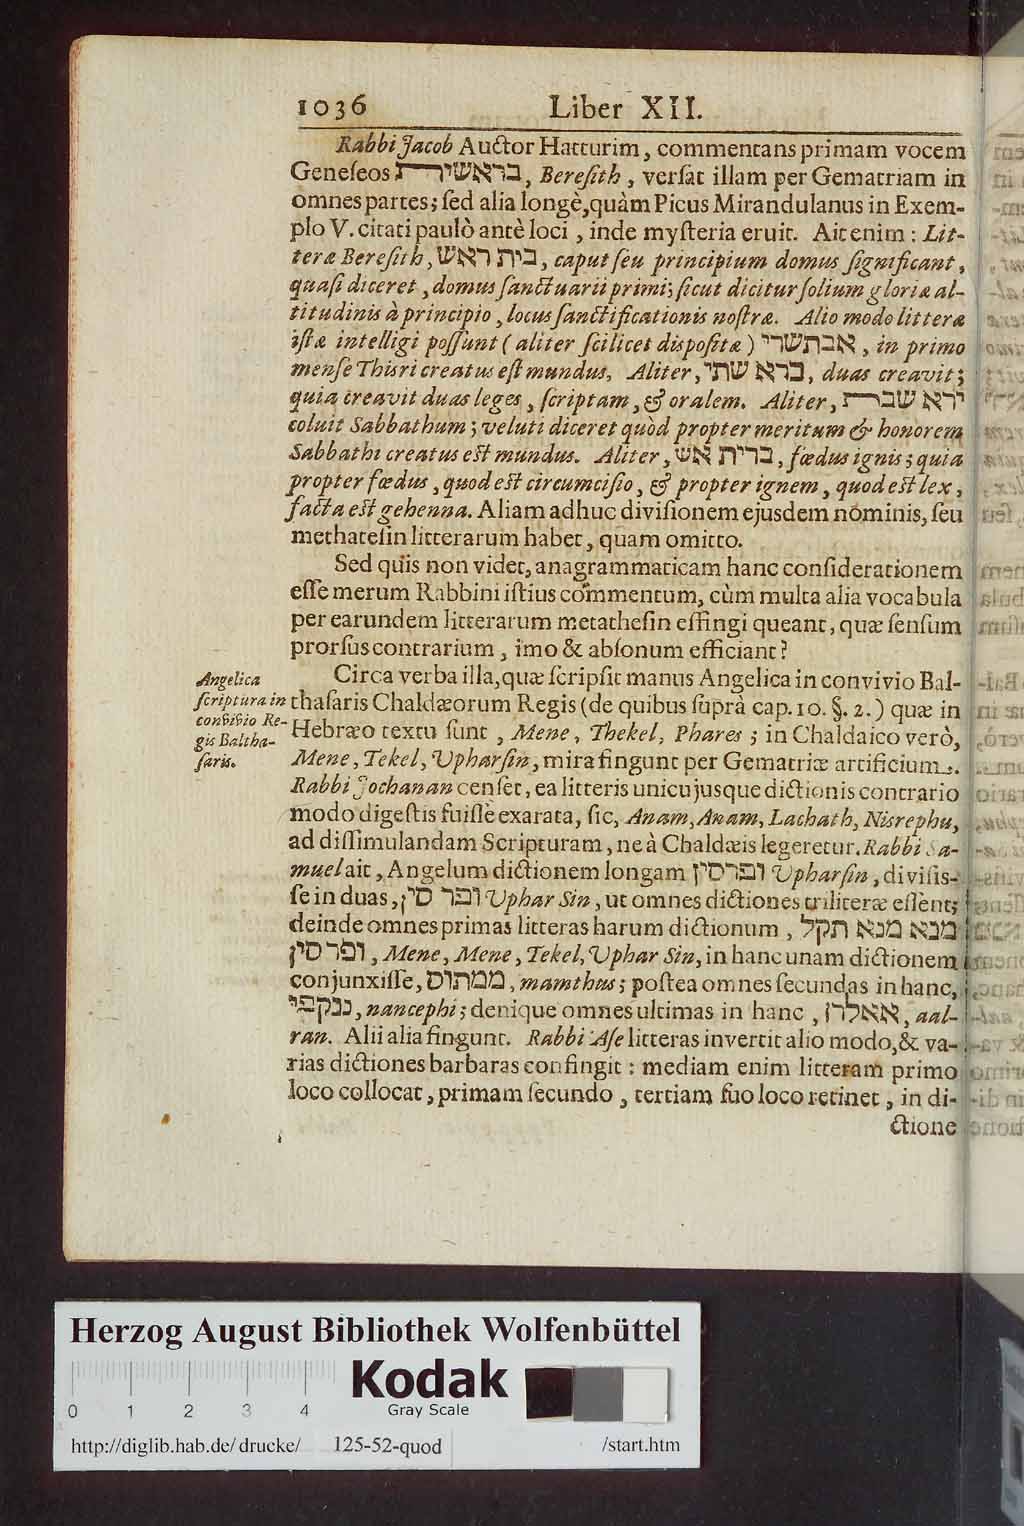 1036 Liber XII.
Rabbi Jacob Auctor Hatturim, commentans primam vocem
Geneſeos בראשית, Bereſith, verſat illam per Gematriam in
omnes partes; ſed alia longè, quàm Picus Mirandulanus in Exem-
plo V. citati paulò antè loci, inde myſteria eruit. Ait enim: Lit-
teræ Bereſith, בית ראש, caput ſeu principium domus ſignificant,
quaſi diceret, domus ſanctuarii primi; ſicut dicitur ſolium gloriæ al-
titudinis à principio, locus ſanctificationis noſtræ. Alio modo litteræ
iſtæ intelligi poſſunt (aliter ſcilicet diſpoſitæ) אבתשרי, in primo
menſe Thisri creatus eſt mundus. Aliter, ברא שתי, duas creavit;
quia creavit duas leges, ſcriptam, & oralem. Aliter, ירא שבת
coluit Sabbathum; veluti diceret quòd propter meritum & honorem
Sabbathi creatus eſt mundus. Aliter, ברית אש, fœdus ignis; quia
propter fœdus, quod eſt circumciſio, & propter ignem, quod eſt lex,
facta eſt gehenna. Aliam adhuc diviſionem ejusdem nominis, ſeu
methateſin litterarum habet, quam omitto.
Sed quis non videt, anagrammaticam hanc conſiderationem
eſſe merum Rabbini iſtius commentum, cùm multa alia vocabula
per earundem litterarum metatheſin effingi queant, quæ ſenſum
prorſus contrarium, imo & abſonum efficiant?
Angelica
ſcriptura in
convivio Re-
gis Baltha-
ſaris.
Circa verba illa, quæ ſcripſit manus Angelica in convivio Bal-
thaſaris Chaldæorum Regis (de quibus ſuprà cap. 10. §. 2.) quæ in
Hebræo textu ſunt, Mene, Thekel, Phares; in Chaldaico verò,
Mene, Tekel, Upharſin, mira fingunt per Gematriæ artificium.
Rabbi Jochanan cenſet, ea litteris unicujusque dictionis contrario
modo digeſtis fuiſſe exarata, ſic, Anam, Anam, Lachath, Niſrephu,
ad diſſimulandam Scripturam, ne à Chaldæis legeretur. Rabbi Sa-
muel ait, Angelum dictionem longam ופרסין Upharſin, diviſiſ-
ſe in duas, ופר סין Uphar Sin, ut omnes dictiones triliteræ eſſent;
deinde omnes primas litteras harum dictionum, מנא מנא תקל
ופר סין, Mene, Mene, Tekel, Uphar Sin, in hanc unam dictionem
conjunxiſſe, ממתוס, mamthus; poſtea omnes ſecundas in hanc,
ננקפי, nancephi; denique omnes ultimas in hanc, אאלרן, aal-
ran. Alii alia fingunt. Rabbi Aſe litteras invertit alio modo, & va-
rias dictiones barbaras confingit: mediam enim litteram primo
loco collocat, primam ſecundo, tertiam ſuo loco retinet, in di-
ctione
Herzog August Bibliothek Wolfenbüttel
Kodak
Gray Scale
0 1 2 3 4
http://diglib.hab.de/drucke/ 125-52-quod /start.htm